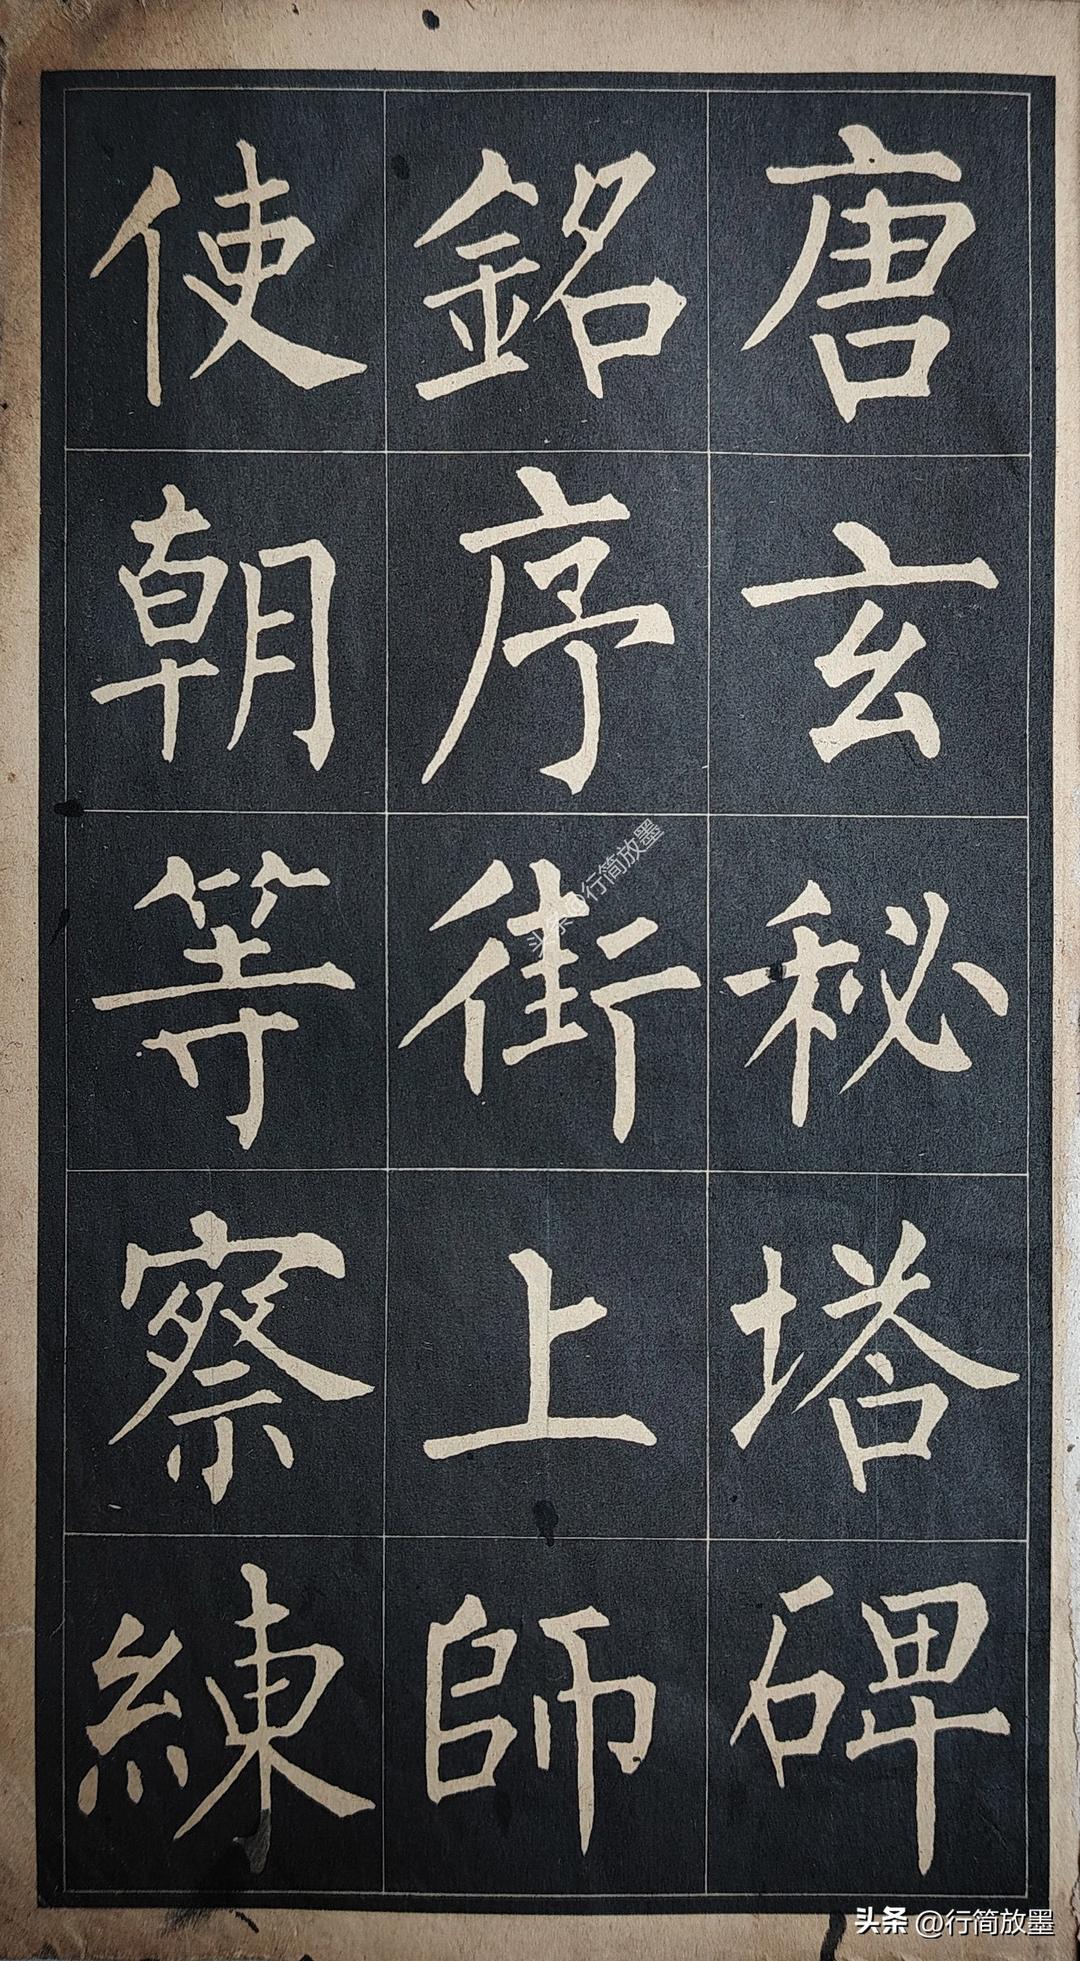 唐玄秘塔碑
銘序街上師
使朝等察練
头条@行简放墨
头条 @行简放墨